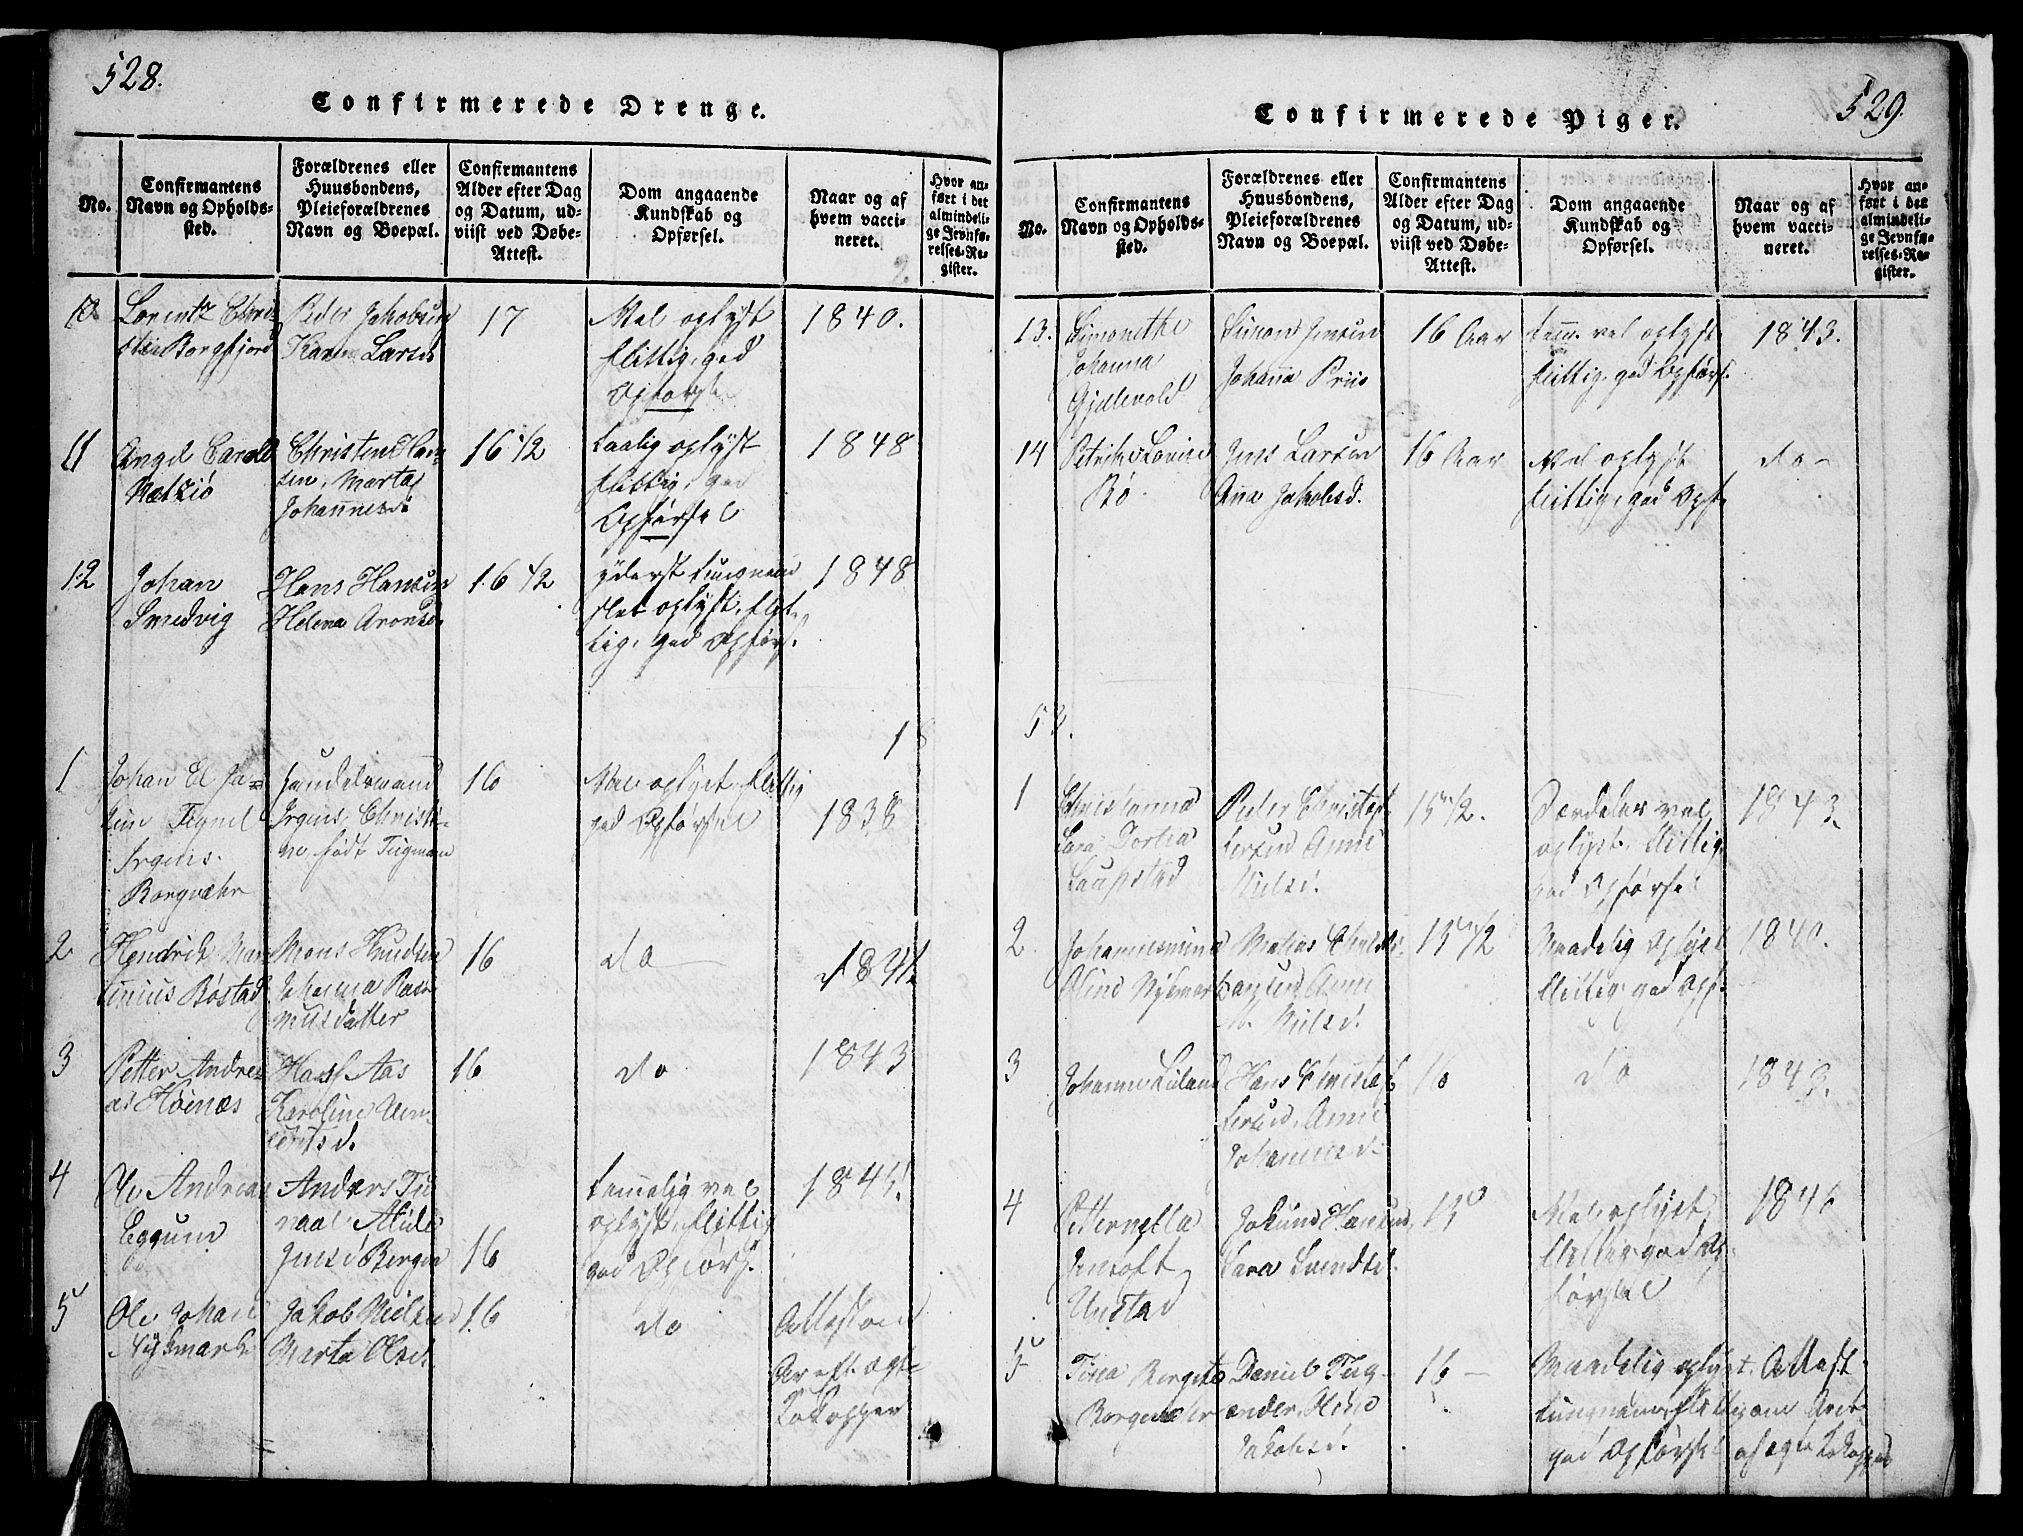 528.
Confirmerede Drenge.
No.
Confirmantens
Navn og Opholds-
sted.
Forældrenes eller
Huusbondens,
Pleieforældrenes
Navn og Boepæl.
Confirmantens
Alder efter Dag
og Datum, ud-
viist ved Døbe-
Attest.
Dom angaaende
Kundskab og
Opførsel.
Naar og af
hvem vacci-
neret.
Hvor an-
ført i det
almindeli-
ge Jevnfø-
relses-Re-
gister.
10
Lorentz Chri-
Borgfjord
Peder Jakobsen
Karen Larsd
17
Vel oplyst
flittig, god
Opførsel
1840.
11
Angel Carold
Christen Han-
sen, Marta
Johannesd.
16 1/2
taalig oplyst
flittig, god
Opførsel
1848
12
Johan
Smedvig
Hans Hansen
Helena Aronsd.
16 1/2
yderst tungnem
slet oplyst, flit-
tig, god Opførs.
1848
18
1
Johan
Irgens.
Borgvæhr
Handelsmand
Irgens, Christi-
ne, født Tugman
16
Vel oplyst, flittig
god Opførsel
1838
2
Hendrik Mar-
tinius Bøstad
Mons Knudsen
Johanna Ras-
musdatter
16
do
1841
3
Petter Andre-
as Høinæs
Aas
Karoline
16
do
1843
4
Ole Andreas
Eggum
Anders
Jensd Bergen
16
temelig vel
oplyst, flittig
god Opførs.
1845.
5
Ole Johan
Nykmark
Jakob Nielsen
Marta Olsd.
16
do
Attest om
Ar eft. ægte
Kokopper
529.
Confirmerede Piger.
No.
Confirmantens
Navn og Opholds-
sted.
Forældrenes eller
Huusbondens,
Pleieforældrenes
Navn og Boepæl.
Confirmantens
Alder efter Dag
og Datum, ud-
viist ved Døbe-
Attest.
Dom angaaende
Kundskab og
Opførsel.
Naar og af
hvem vacci-
neret.
Hvor an-
ført i det
almindeli-
ge Jevnfø-
relses-Re-
gister.
13.
Simonethe
Johanna
Gjellevold
Simon Jensen
Johanna Priis
16 Aar
tem. vel oplyst
flittig, god Opførs.
1843.
14
Petrikke Lovise
Bø
Jens Larsen
Ana Jakobsd.
16 Aar
Vel oplyst
flittig, god Opf.
do
53.
1
Christianna
Lara Dortea
Laupstad
Peder Christof-
fersen Anne
Nielsd.
15 1/2.
Særdeles vel
oplyst, flittig
god Opførsel
1843
2
Johannesmina
Oline Nykmark
Matias
Anne
M. Nielsd.
15 1/2
Maadelig oplyst
flittig, god Opf.
1840.
3
Johanne Liland
Hans Christof-
fersen, Anne
Johannesd.
16
do
1843.
4
Petternella
Jensoft
Unstad
Jokum Hansen,
Lara Svendsd.
15
Vel oplyst
flittig god Op-
førsel
1846
5
Tina Bergite
Borgevær
Daniel Tug-
ander,
Jakobsd.
16 —
Maadelig oplyst.
tungnem, flittig
god Opførsel
Attest
om Aret
af ægte Kokopper